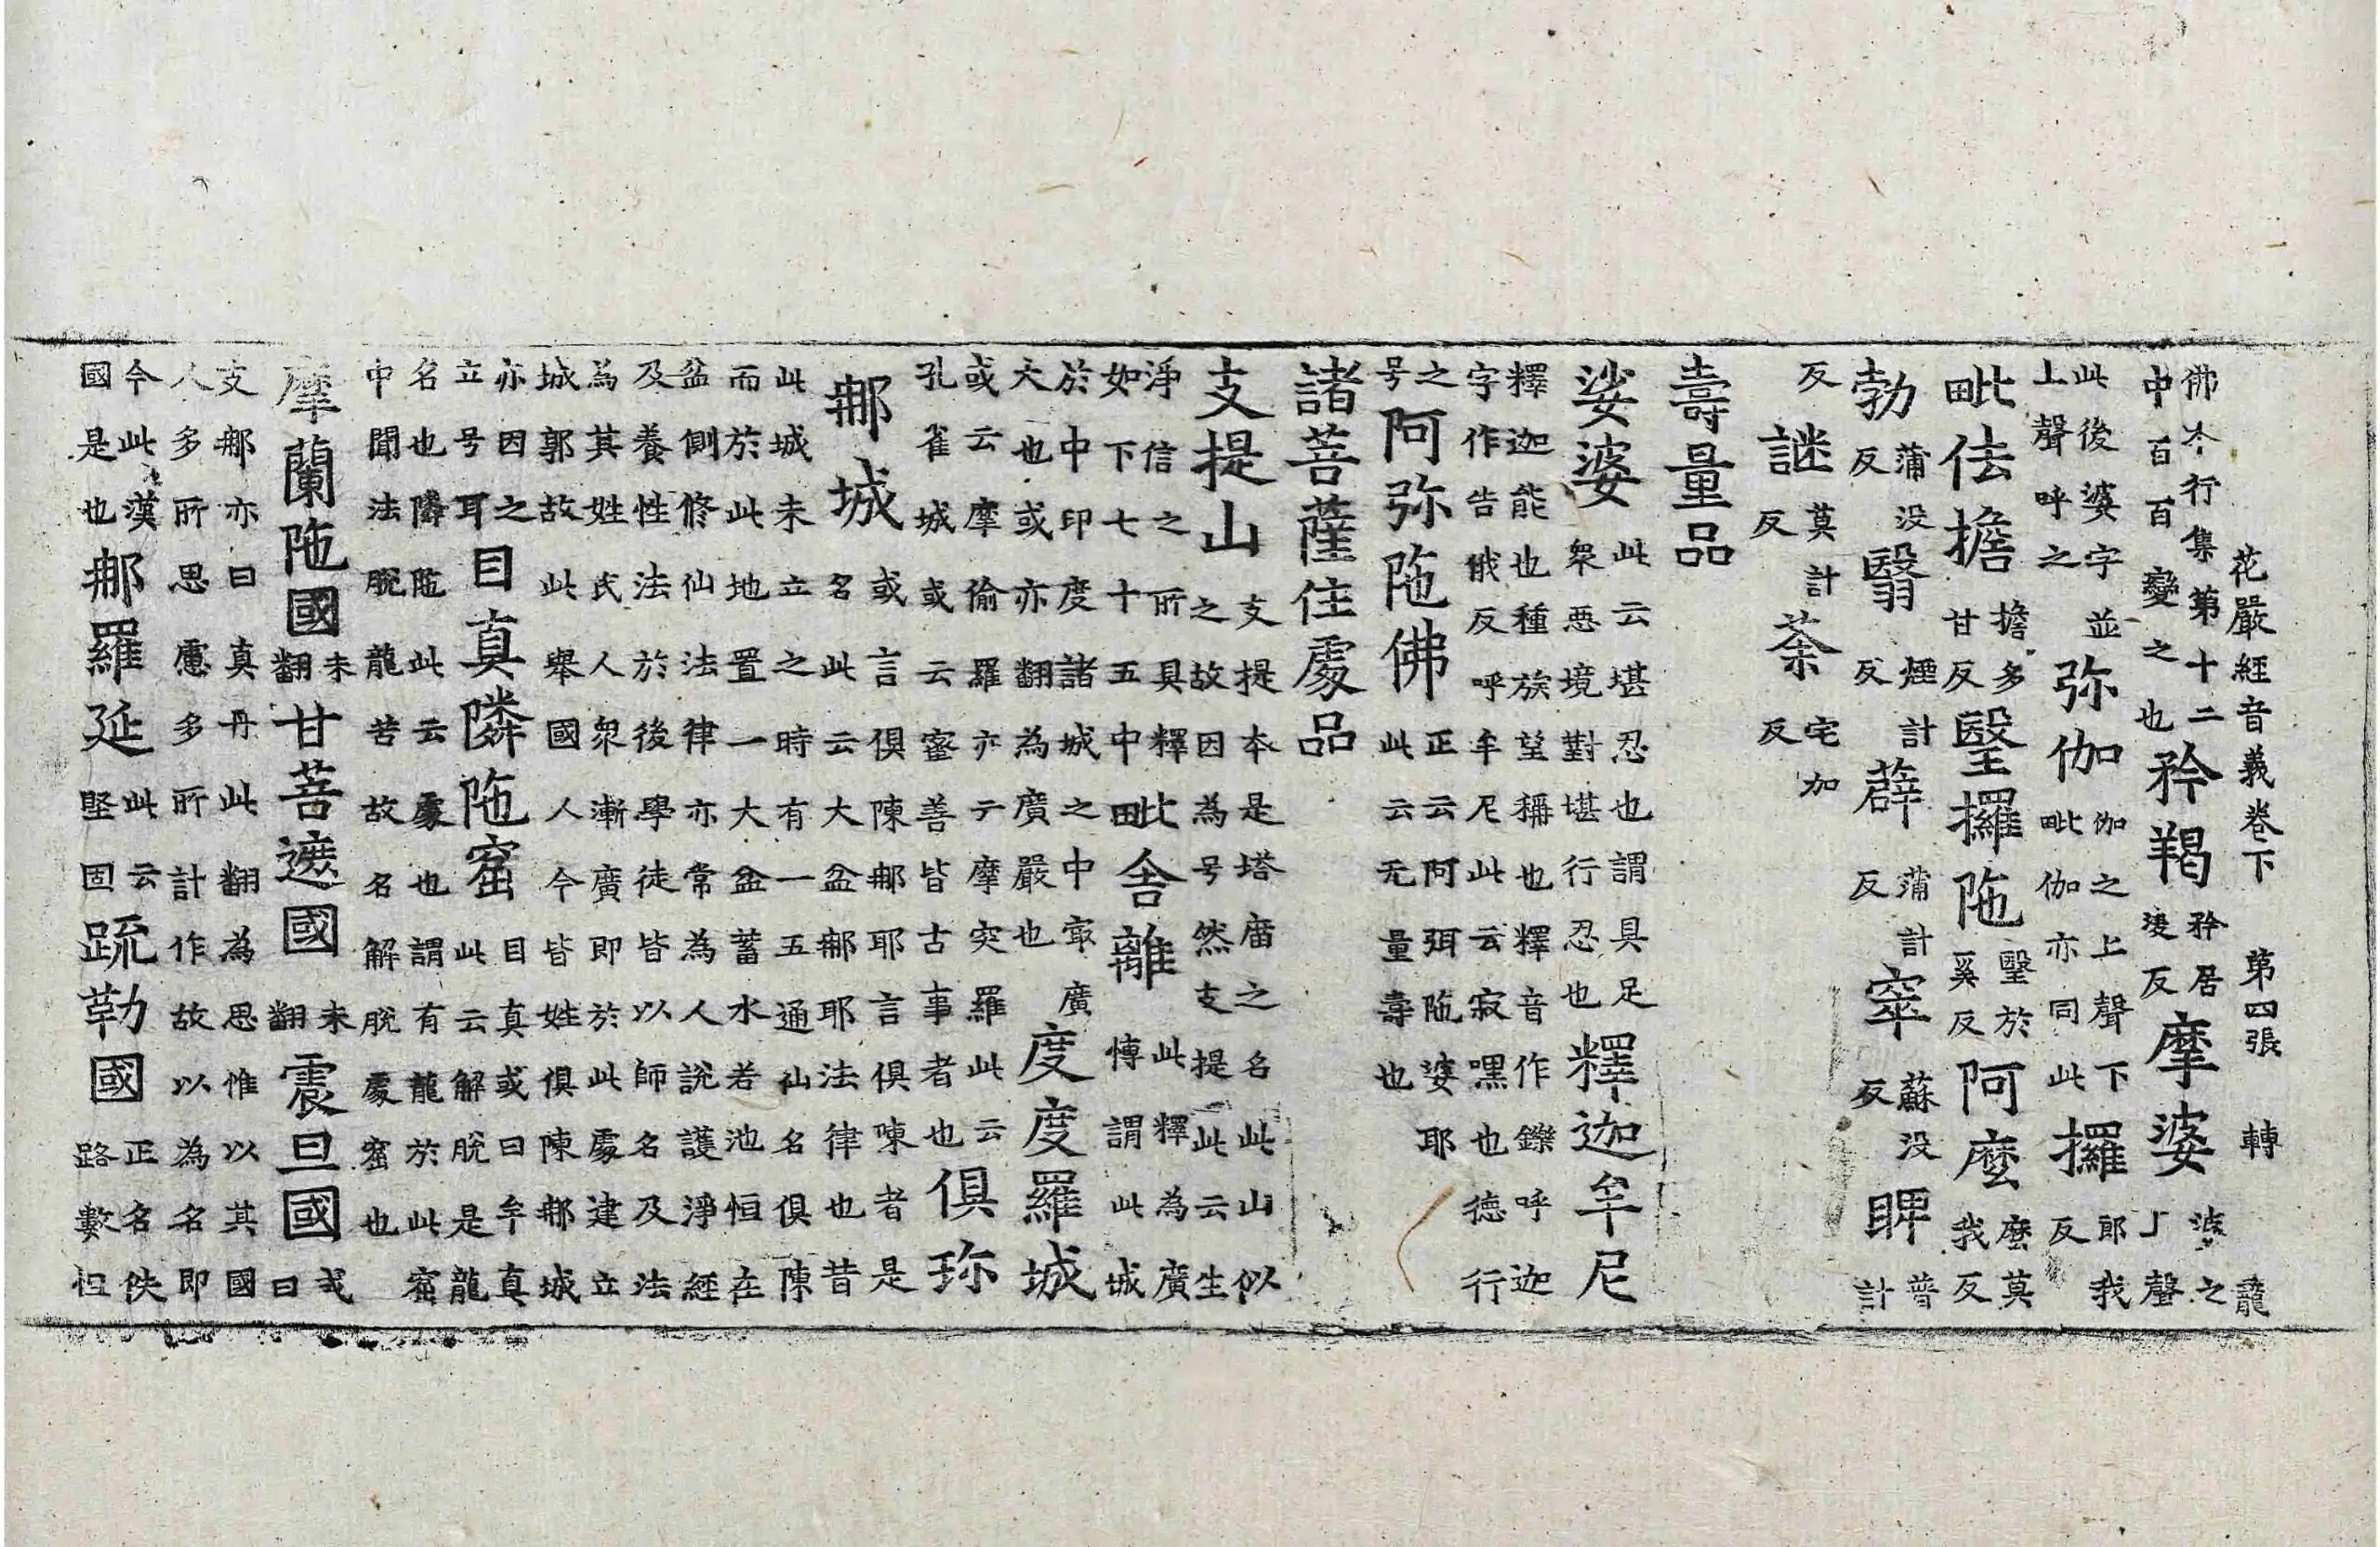 花嚴經音義卷下 第四張 轉 龍
佛本行集第十二
中百百變之也
矜羯
矜居
㥄反
摩婆
婆之
上聲
此後婆字並
上聲呼之
弥伽
伽之上聲下
毗伽亦同此
攞
郎我
反
毗佉擔
擔多
甘反
瑿攞陁
瑿於
奚反
阿麼
麼莫
我反
勃
蒲没
反
翳
煙計
反
薜
蒲計
反
窣
蘇没
反
睥
普
計
反
謎
莫計
反
荼
宅加
反
壽量品
娑婆
此云堪忍也謂具足
衆惡境對堪行忍也
釋迦牟尼
釋迦能也種族望稱也釋音作鑠呼迦
字作告俄反呼牟尼此云寂嘿也德行
之
号
阿弥陁佛
正云阿弭陁婆耶
此云无量壽也
諸菩薩住處品
支提山
支提本是塔庿之名此山似
之故因為号然支提此云生
淨信之所具釋
如下七十五中
毗舍離
此釋為廣
慱謂此城
於中印度諸城之中㝡廣
大也或亦翻為廣嚴也
度度羅城
或云摩偷羅亦亍摩突羅此云
孔雀城或云蜜善皆古事者也
俱珎
𨚗城
或言俱陳𨚗耶言俱陳者是
名此云大盆𨚗耶法律也昔
此城未立之時有一五通仙名俱陳
而於此地置一大盆蓄水若池恒在
盆側修仙法律亦常為人說護淨經
及養性法於後學徒皆以師名及法
為其姓氏人衆漸廣即於此處建立
城郭故此舉國人今皆姓俱陳𨚗城
亦因之
立号耳
目真隣陁窟
目真或曰牟真
此云解脫是龍
名也隣陁此云處也謂有龍於此窟
中聞法脫龍苦故名解脫處窟也
摩蘭陁國
未
翻
甘菩遮國
未
翻
震旦國
或
曰
支𨚗亦曰真丹此翻為思惟以其國
人多所思慮多所計作故以為名即
今此漢
國是也
𨚗羅延
此云
堅固
疏勒國
正名佉
路數怛